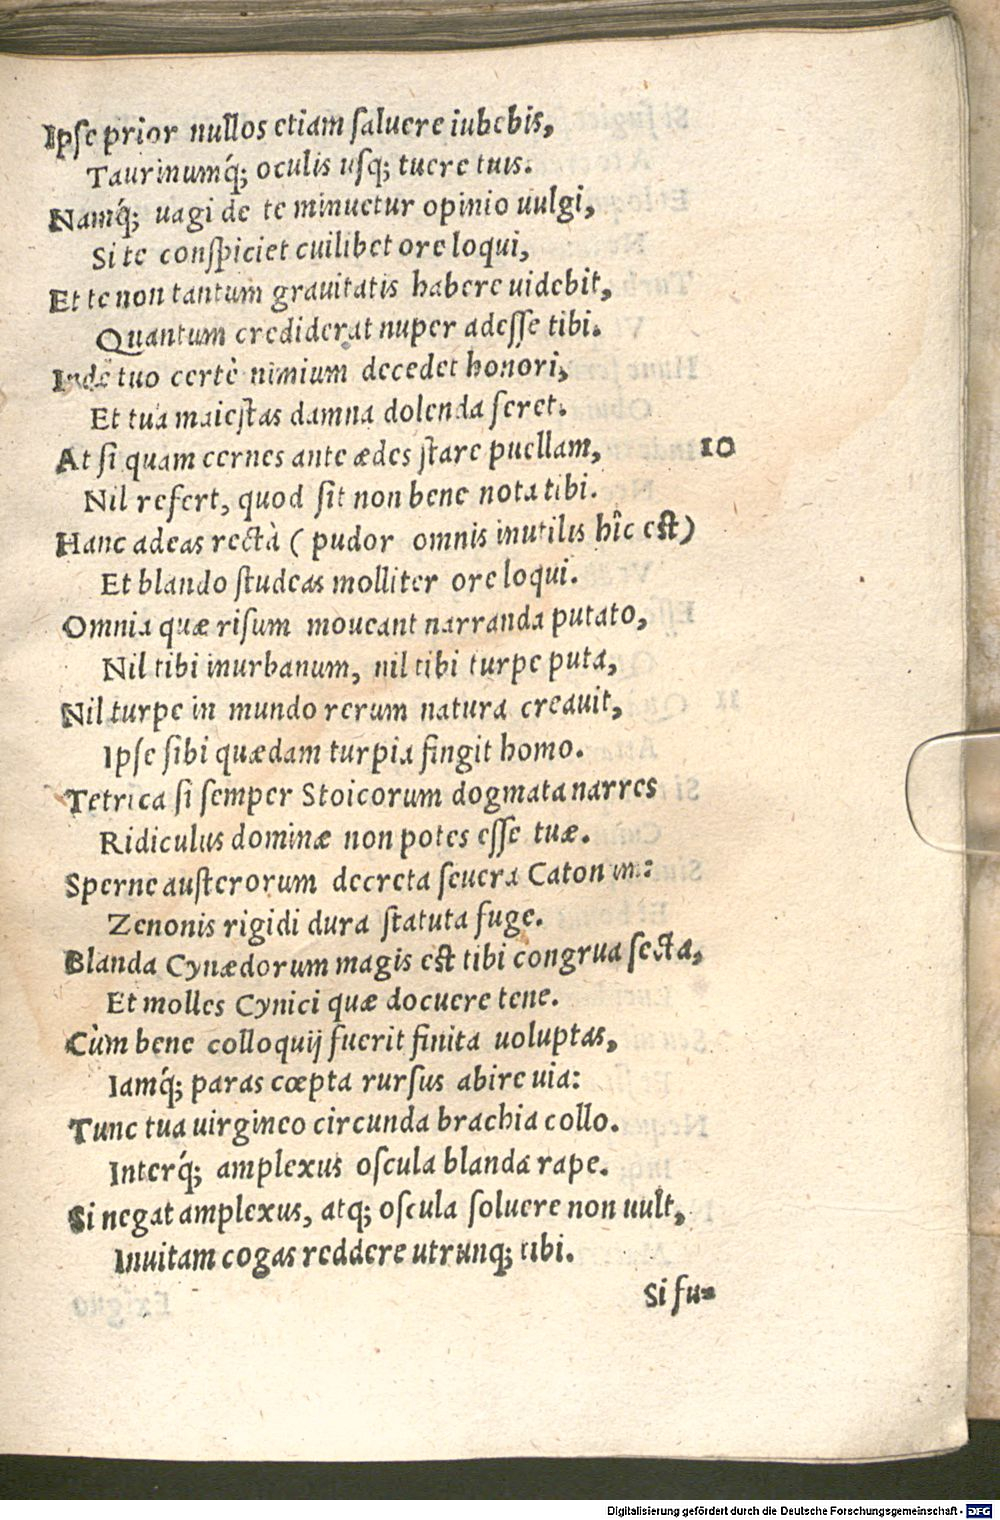 Ipse prior nullos etiam saluere iubebis,
Taurinumq́; oculis usq; tuere tuis.
Namq́; uagi de te minuetur opinio uulgi,
Si te conspiciet cuilibet ore loqui,
Et te non tantum grauitatis habere uidebit,
Quantum crediderat nuper adesse tibi.
Inde tuo certè nimium decedet honori,
Et tua maiestas damna dolenda feret.
At si quam cernes ante ædes stare puellam, 10
Nil refert, quod sit non bene nota tibi.
Hanc adeas rectà ( pudor omnis inutilis hîc est)
Et blando studeas molliter ore loqui.
Omnia quæ risum moueant narranda putato,
Nil tibi inurbanum, nil tibi turpe puta,
Nil turpe in mundo rerum natura creauit,
Ipse sibi quædam turpia fingit homo.
Tetrica si semper Stoicorum dogmata narres
Ridiculus dominæ non potes esse tuæ.
Sperne austerorum decreta seuera Catonum:
Zenonis rigidi dura statuta fuge.
Blanda Cynædorum magis est tibi congrua secta,
Et molles Cynici quæ docuere tene.
Cùm bene colloquij fuerit finita uoluptas,
Iamq́; paras cœpta rursus abire uia:
Tunc tua uirgineo circunda brachia collo.
Interq́; amplexus oscula blanda rape.
Si negat amplexus, atq; oscula soluere non uult,
Inuitam cogas reddere utrunq; tibi.
Si fu-
Digitalisierung gefördert durch die Deutsche Forschungsgemeinschaft - DFG